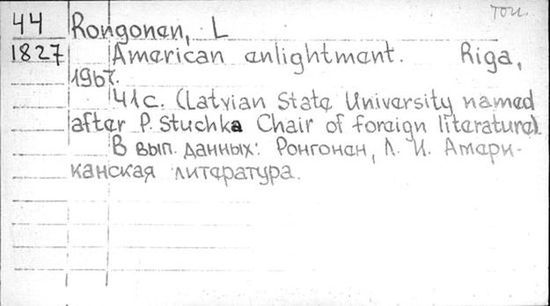 44 Rongonen, L
1827 American enlightment. Riga,
1967.
41 с. (Latvian State University named
after P. Stuchka Chair of foreign literature).
В вып. данных: Ронгонен, Л. И. Амери-
канская литература.